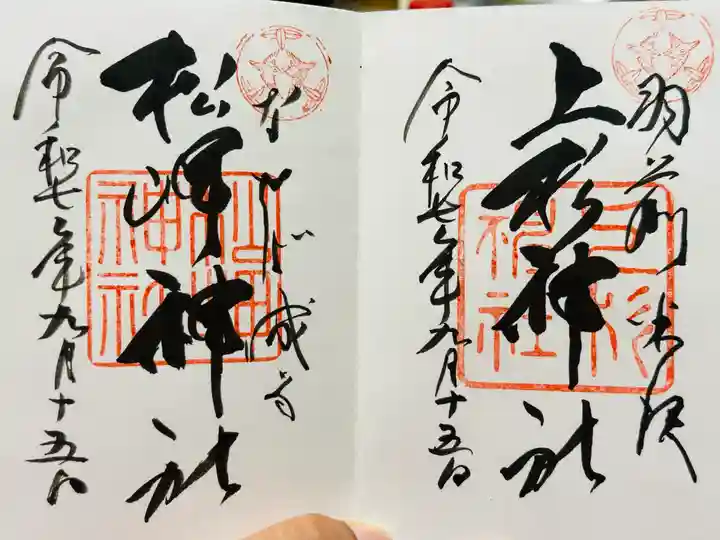 羽前米沢
上杉神社
令和七年九月十五日
なせばなる
松岬神社
令和七年九月十五日
上杉神社
松岬神社